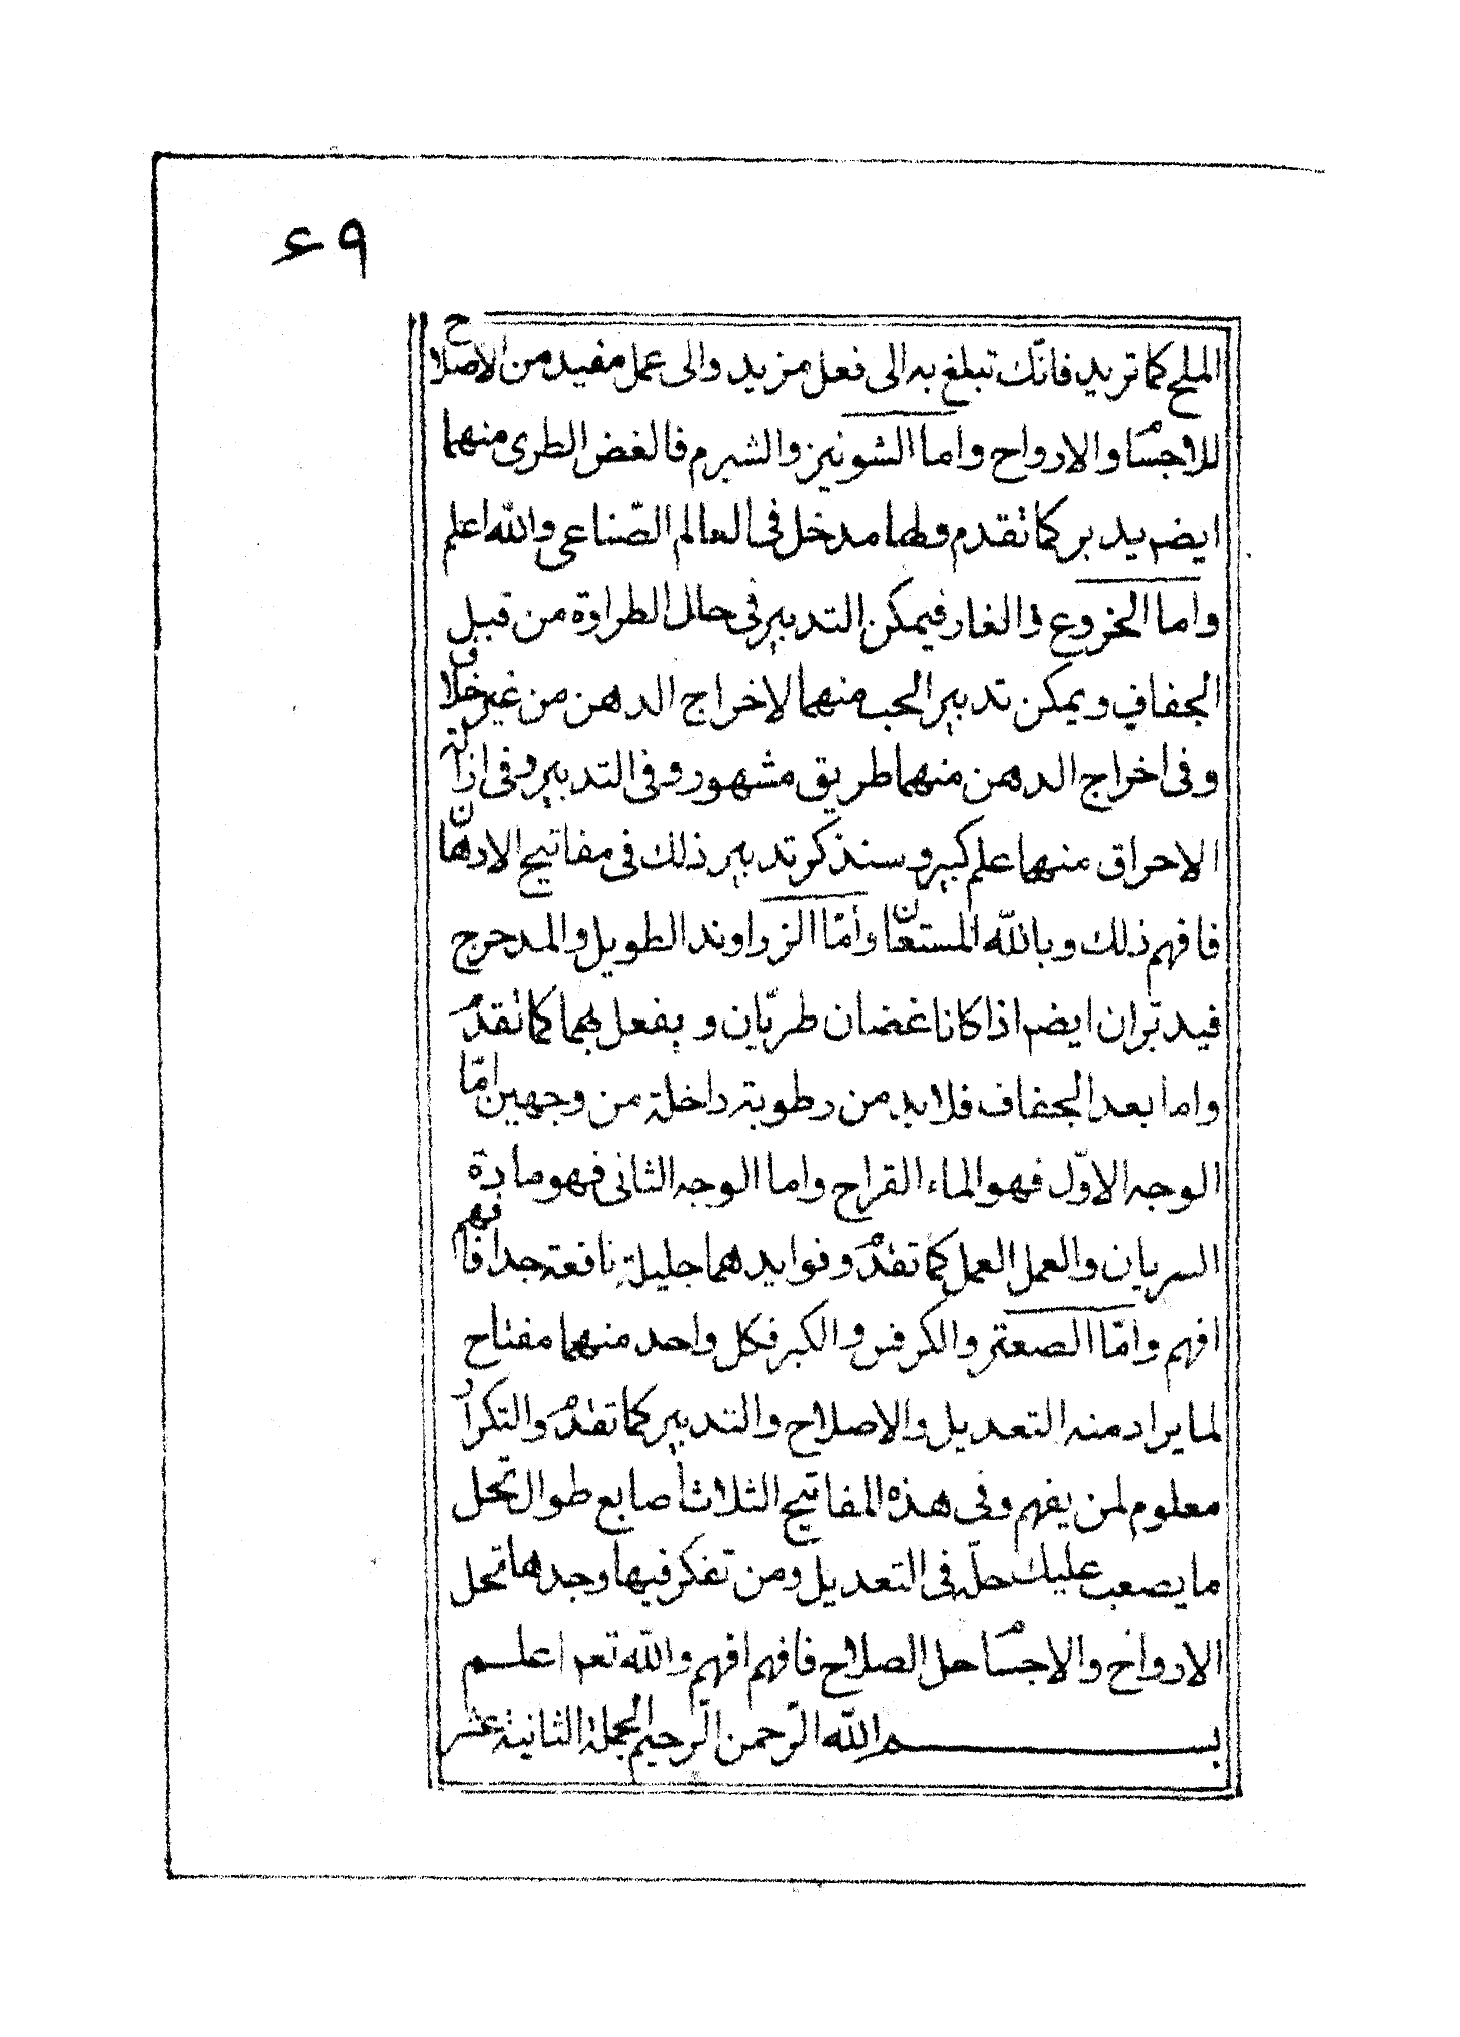 ۹۶
الملح كما تريد فانّك تبلغ به الى فعل مزيد والى عمل مفيد من الاصلاح
للاجسام والارواح واما الشونيز والشبرم فالغض الطرى منهما
ايضم يدبر كما تقدم ولهما مدخل فى العالم الصّناعى والله اعلم
واما الخروع والغار فيمكن التدبير فى حال الطراوة من قبل
الجفاف ويمكن تدبير الحب منهما لاخراج الدهن من غير خلاف
وفى اخراج الدهن منهما طريق مشهور وفى التدبير وفى ازالة
الاحراق منهما علم كبير وسنذكر تدبير ذلك فى مفاتيح الادهان
فافهم ذلك وبالله المستعان وأمّا الزراوند الطويل والمدحرج
فيدبّران ايضم اذا كانا غضان طريّان ويفعل بهما كما تقدم
واما بعد الجفاف فلابد من رطوبة داخلة من وجهين امّا
الوجه الاوّل فهو الماء القراح واما الوجه الثانى فهو مادة
السريان والعمل العمل كما تقدم وفوايدهما جليلة نافعة جدا فافهم
افهم وامّا الصعتر والكرفس والكبر فكل واحد منهما مفتاح
لما يراد منه التعديل والاصلاح والتدبير كما تقدم والتكرار
معلوم لمن يفهم وفى هذه المفاتيح الثلاث أصابع طوال تحل
ما يصعب عليك حلّه فى التعديل ومن تفكر فيها وجدها تحل
الارواح والاجسام حل الصلاح فافهم افهم والله تعم اعلم
بسم الله الرّحمن الرّحيم الجملة الثانية عشر